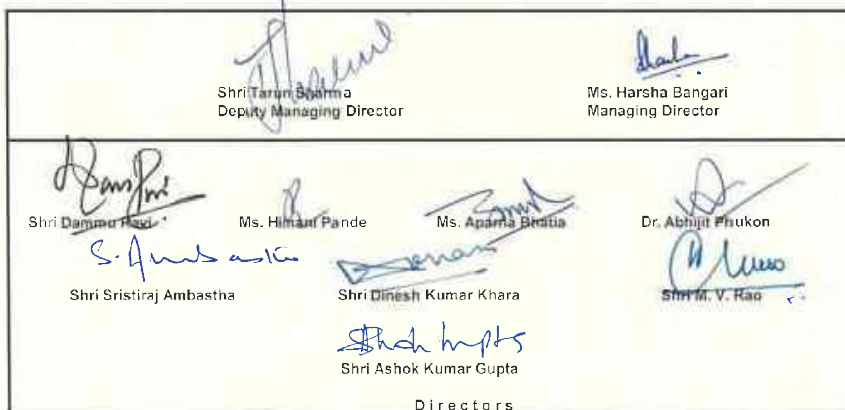 Shri Tarun Sharma Ms. Harsha Bangari
Deputy Managing Director Managing Director
Shri Dammu Ravi Ms. Himani Pande Ms. Aparna Bhatia Dr. Abhijit Phukon
S. Ambastha
Shri Sristiraj Ambastha Shri Dinesh Kumar Khara Shri M. V. Rao
Shri Ashok Kumar Gupta
Directors